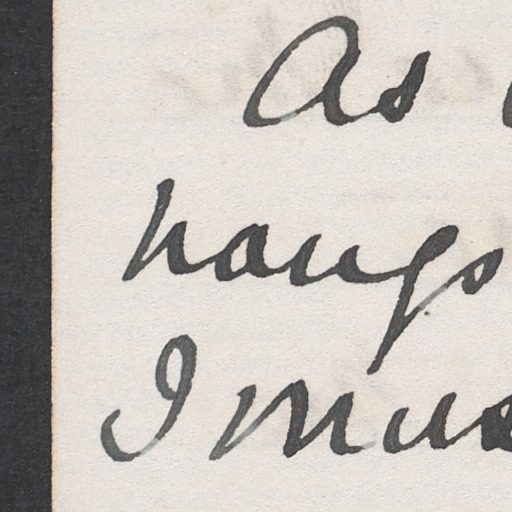 As
hangs
I mus